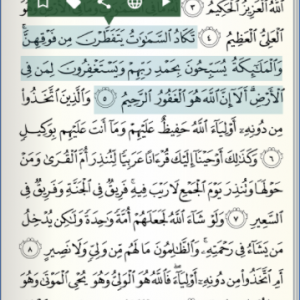 اللَّهُ الْعَزِيزُ الْحَكِيمُ ٣
الْعَلِيُّ الْعَظِيمُ ٤ تَكَادُ السَّمَاوَاتُ يَتَفَطَّرْنَ مِن فَوْقِهِنَّ
وَالْمَلَائِكَةُ يُسَبِّحُونَ بِحَمْدِ رَبِّهِمْ وَيَسْتَغْفِرُونَ لِمَن فِي
الْأَرْضِ أَلَا إِنَّ اللَّهَ هُوَ الْغَفُورُ الرَّحِيمُ ٥ وَالَّذِينَ اتَّخَذُوا
مِن دُونِهِ أَوْلِيَاءَ اللَّهُ حَفِيظٌ عَلَيْهِمْ وَمَا أَنتَ عَلَيْهِم بِوَكِيلٍ
٦ وَكَذَٰلِكَ أَوْحَيْنَا إِلَيْكَ قُرْآنًا عَرَبِيًّا لِّتُنذِرَ أُمَّ الْقُرَىٰ وَمَنْ
حَوْلَهَا وَتُنذِرَ يَوْمَ الْجَمْعِ لَا رَيْبَ فِيهِ فَرِيقٌ فِي الْجَنَّةِ وَفَرِيقٌ فِي
السَّعِيرِ ٧ وَلَوْ شَاءَ اللَّهُ لَجَعَلَهُمْ أُمَّةً وَاحِدَةً وَلَٰكِن يُدْخِلُ
مَن يَشَاءُ فِي رَحْمَتِهِ وَالظَّالِمُونَ مَا لَهُم مِّن وَلِيٍّ وَلَا نَصِيرٍ ٨
أَمِ اتَّخَذُوا مِن دُونِهِ أَوْلِيَاءَ فَاللَّهُ هُوَ الْوَلِيُّ وَهُوَ يُحْيِي الْمَوْتَىٰ وَهُوَ